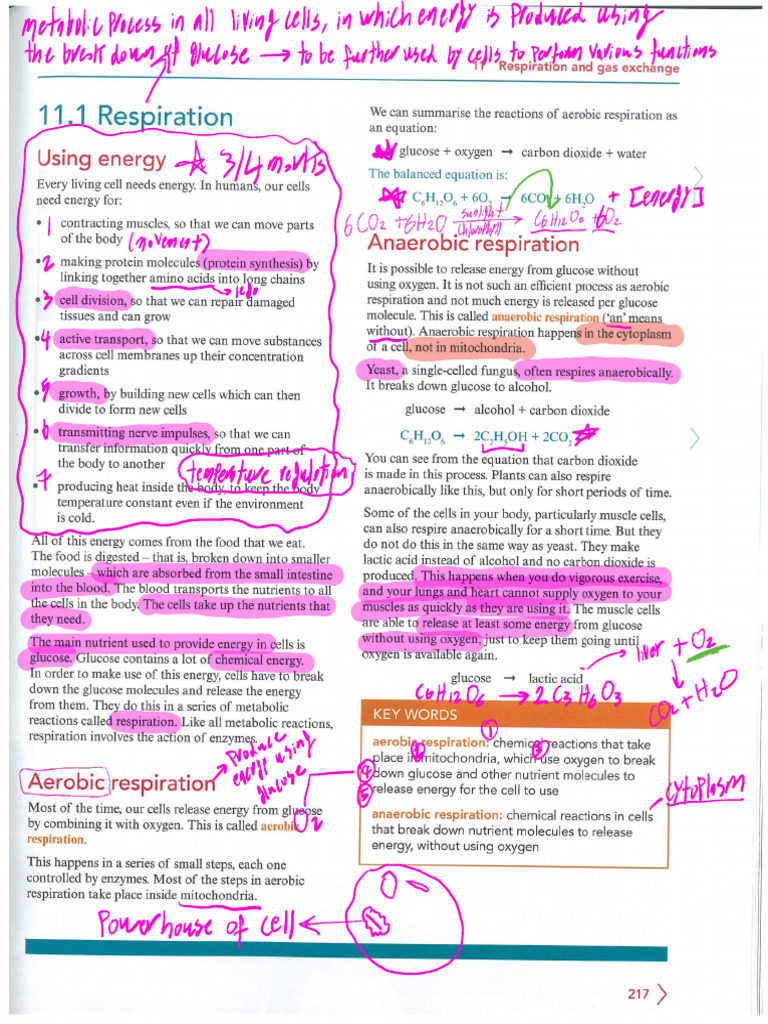 metabolic process in all living cells, in which energy is produced using
the break down of glucose → to be further used by cells to perform various functions
11 Respiration and gas exchange
11.1 Respiration
Using energy ☆ 3/4 marks
Every living cell needs energy. In humans, our cells
need energy for:
• 1 contracting muscles, so that we can move parts
of the body (movement)
• 2 making protein molecules (protein synthesis) by
linking together amino acids into long chains
• 3 cell division, so that we can repair damaged
tissues and can grow
• 4 active transport, so that we can move substances
across cell membranes up their concentration
gradients
• 5 growth, by building new cells which can then
divide to form new cells
• 6 transmitting nerve impulses, so that we can
transfer information quickly from one part of
the body to another (temperature regulation)
• 7 producing heat inside the body, to keep the body
temperature constant even if the environment
is cold.
All of this energy comes from the food that we eat.
The food is digested – that is, broken down into smaller
molecules – which are absorbed from the small intestine
into the blood. The blood transports the nutrients to all
the cells in the body. The cells take up the nutrients that
they need.
The main nutrient used to provide energy in cells is
glucose. Glucose contains a lot of chemical energy.
In order to make use of this energy, cells have to break
down the glucose molecules and release the energy
from them. They do this in a series of metabolic
reactions called respiration. Like all metabolic reactions,
respiration involves the action of enzymes.
Produce
energy using
glucose
Aerobic respiration
O2
Most of the time, our cells release energy from glucose
by combining it with oxygen. This is called aerobic
respiration.
This happens in a series of small steps, each one
controlled by enzymes. Most of the steps in aerobic
respiration take place inside mitochondria.
Powerhouse of cell
We can summarise the reactions of aerobic respiration as
an equation:
glucose + oxygen → carbon dioxide + water
The balanced equation is:
C6H12O6 + 6O2 → 6CO2 + 6H2O + [energy]
6CO2 + 6H2O sunlight + chlorophyll → C6H12O6 + 6O2
Anaerobic respiration
It is possible to release energy from glucose without
using oxygen. It is not such an efficient process as aerobic
respiration and not much energy is released per glucose
molecule. This is called anaerobic respiration ('an' means
without). Anaerobic respiration happens in the cytoplasm
of a cell, not in mitochondria.
Yeast, a single-celled fungus, often respires anaerobically.
It breaks down glucose to alcohol.
glucose → alcohol + carbon dioxide
C6H12O6 → 2C2H5OH + 2CO2
You can see from the equation that carbon dioxide
is made in this process. Plants can also respire
anaerobically like this, but only for short periods of time.
Some of the cells in your body, particularly muscle cells,
can also respire anaerobically for a short time. But they
do not do this in the same way as yeast. They make
lactic acid instead of alcohol and no carbon dioxide is
produced. This happens when you do vigorous exercise,
and your lungs and heart cannot supply oxygen to your
muscles as quickly as they are using it. The muscle cells
are able to release at least some energy from glucose
without using oxygen, just to keep them going until
oxygen is available again.
liver + O2
CO2 + H2O
glucose → lactic acid
C6H12O6 → 2C3H6O3
KEY WORDS
1 2 3 4 5
aerobic respiration: chemical reactions that take
place in mitochondria, which use oxygen to break
down glucose and other nutrient molecules to
release energy for the cell to use
cytoplasm
anaerobic respiration: chemical reactions in cells
that break down nutrient molecules to release
energy, without using oxygen
217